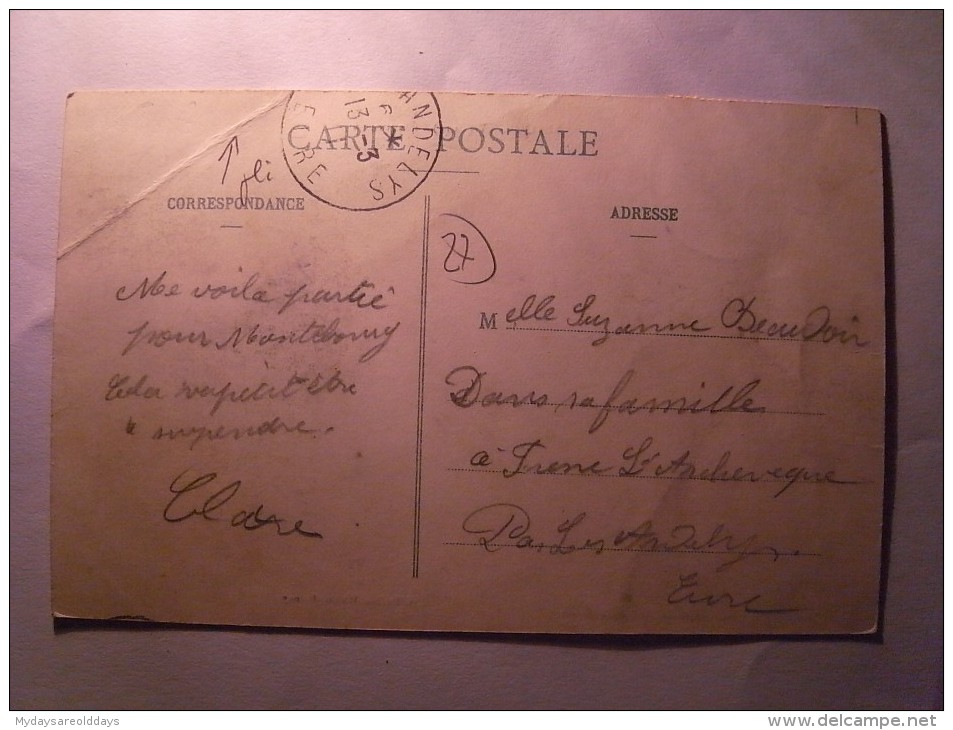 CARTE POSTALE
ANDELYS
13 -3
E RE
pli
CORRESPONDANCE
ADRESSE
27
Me voila partie
pour Montebourg
Cela va petit être
Clare
Melle Suzanne Beaudoin
Dans sa famille
à Fresne L'Archeveque
Par Les Andelys.
Eure
Mydaysareolddays
www.delcampe.net